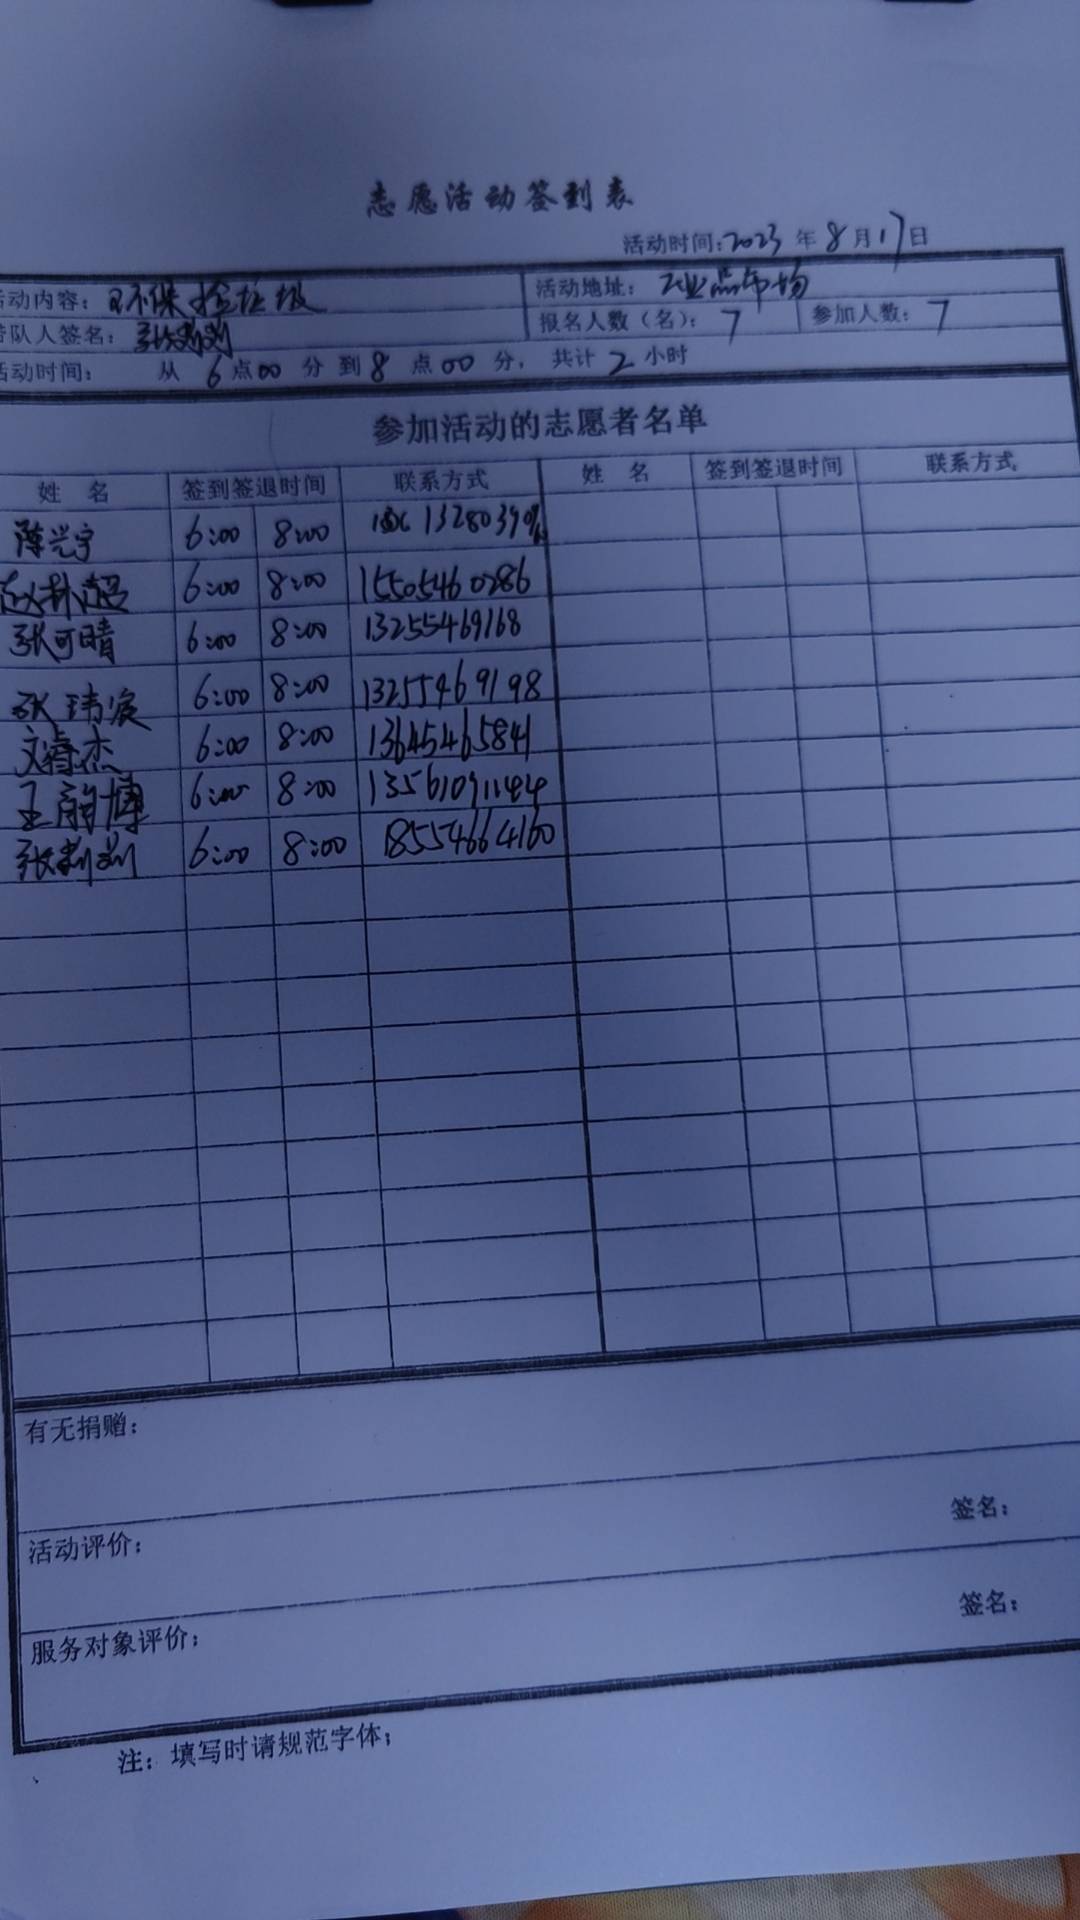 志愿活动签到表
活动时间:2023 年 8 月 17 日
活动内容: 环保捡垃圾 活动地址: 工业品市场
带队人签名: 张莉莉 报名人数(名): 7 参加人数: 7
活动时间: 从 6 点 00 分到 8 点 00 分, 共计 2 小时
参加活动的志愿者名单
姓 名 签到签退时间 联系方式 姓 名 签到签退时间 联系方式
陈兴宇 6:00 8:00
6:00 8:00 15505460286
张可晴 6:00 8:00 13255469168
张玮宸 6:00 8:00 13255469198
文睿杰 6:00 8:00 13645465841
王韵博 6:00 8:00 13561091144
张莉莉 6:00 8:00 18554664160
有无捐赠:
签名:
活动评价:
签名:
服务对象评价:
注: 填写时请规范字体;